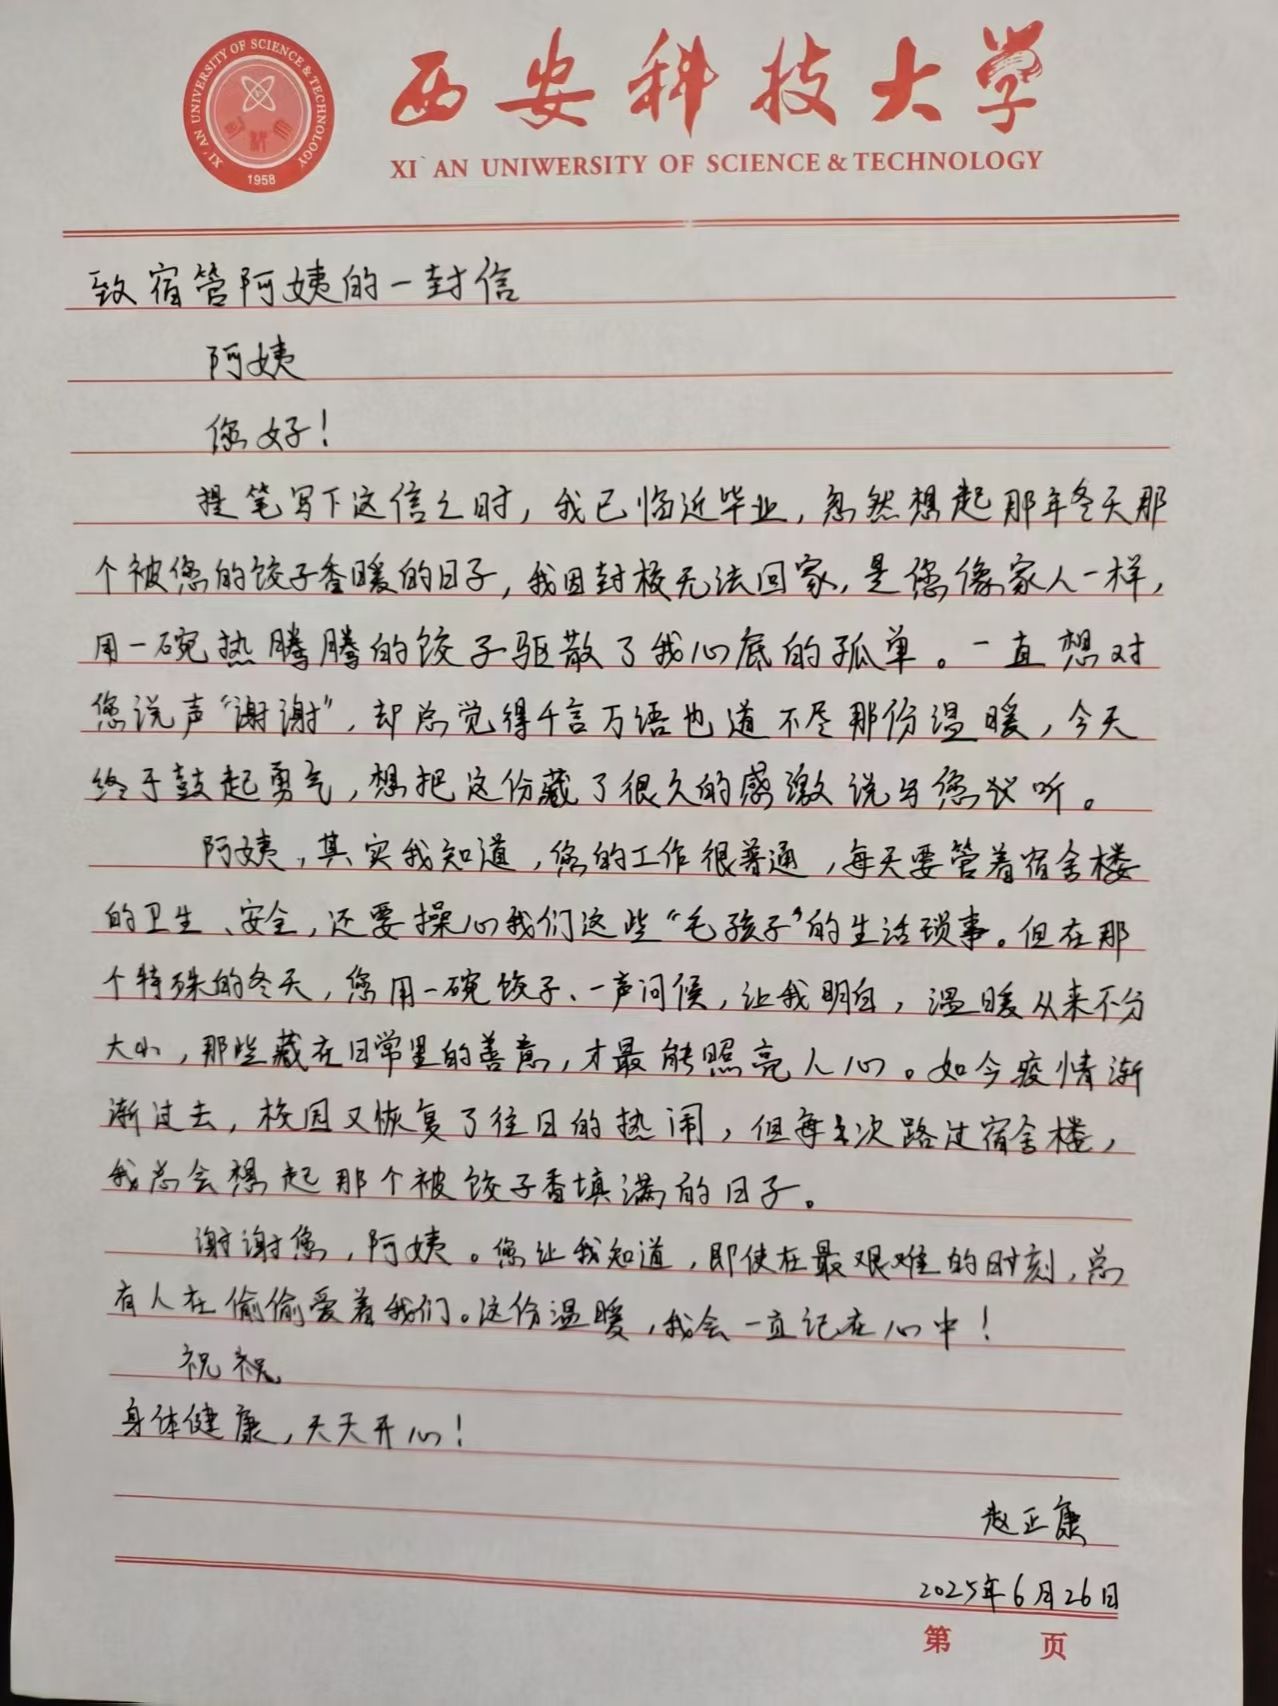 XI'AN UNIVERSITY OF SCIENCE & TECHNOLOGY
1958
西安科技大学
XI`AN UNIWERSITY OF SCIENCE & TECHNOLOGY
致宿管阿姨的一封信
阿姨
您好!
提笔写下这信之时,我已临近毕业,忽然想起那年冬天那
个被您的饺子香暖的日子,我因封校无法回家,是您像家人一样,
用一碗热腾腾的饺子驱散了我心底的孤单。一直想对
您说声“谢谢”,却总觉得千言万语也道不尽那份温暖,今天
终于鼓起勇气,想把这份藏了很久的感激说与您听。
阿姨,其实我知道,您的工作很普通,每天要管着宿舍楼
的卫生、安全,还要操心我们这些“毛孩子”的生活琐事。但在那
个特殊的冬天,您用一碗饺子、一声问候,让我明白,温暖从来不分
大小,那些藏在日常里的善意,才最能照亮人心。如今疫情渐
渐过去,校园又恢复了往日的热闹,但每次路过宿舍楼,
我总会想起那个被饺子香填满的日子。
谢谢您,阿姨。您让我知道,即使在最艰难的时刻,总
有人在偷偷爱着我们。这份温暖,我会一直记在心中!
祝祝
身体健康,天天开心!
赵正康
2025年6月26日
第 页